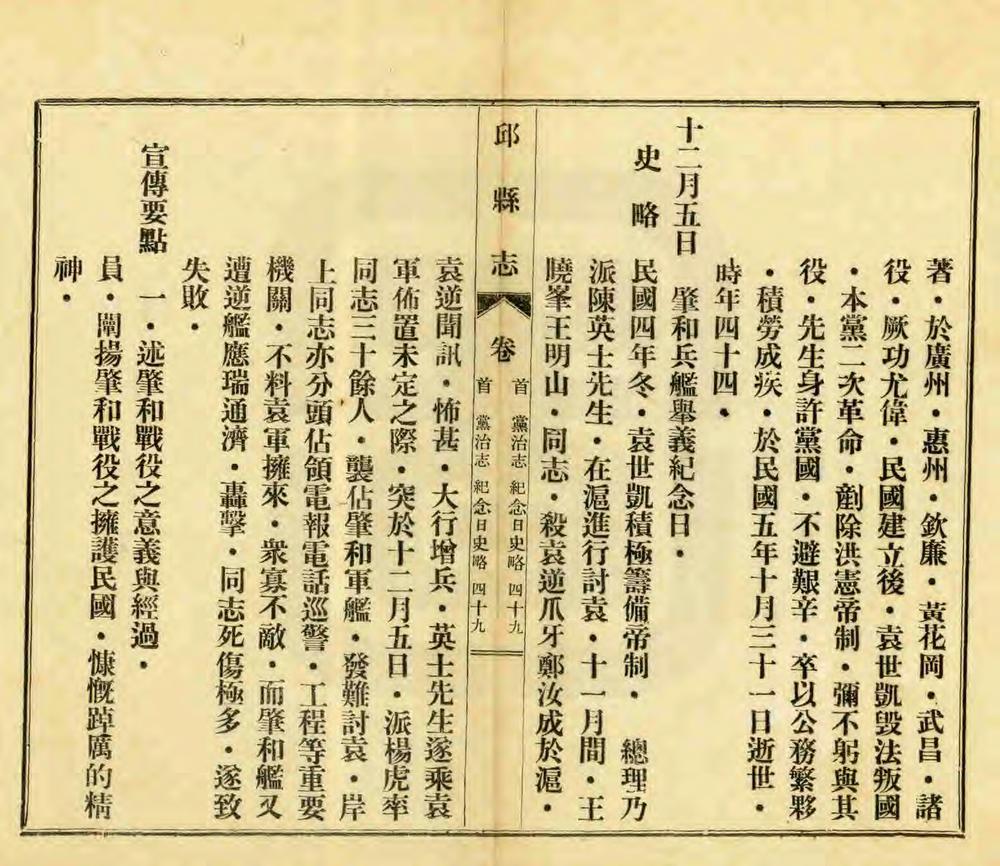 著·於廣州·惠州·欽廉·黃花岡·武昌·諸
役·厥功尤偉·民國建立後·袁世凱毀法叛國
·本黨二次革命·剷除洪憲帝制·彌不躬與其
役·先生身許黨國·不避艱辛·卒以公務繁夥
·積勞成疾·於民國五年十月三十一日逝世·
時年四十四·
十二月五日 肇和兵艦舉義紀念日·
史略 民國四年冬·袁世凱積極籌備帝制· 總理乃
派陳英士先生·在滬進行討袁·十一月間·王
曉峯王明山·同志·殺袁逆爪牙鄭汝成於滬·
邱縣志 卷
首 黨治志 紀念日史略 四十九
首 黨治志 紀念日史略 四十九
袁逆聞訊·怖甚·大行增兵·英士先生遂乘袁
軍佈置未定之際·突於十二月五日·派楊虎率
同志三十餘人·襲佔肇和軍艦·發難討袁·岸
上同志亦分頭佔領電報電話巡警·工程等重要
機關·不料袁軍擁來·衆寡不敵·而肇和艦又
遭逆艦應瑞通濟·轟擊·同志死傷極多·遂致
失敗·
宣傳要點 一·述肇和戰役之意義與經過·
員·闡揚肇和戰役之擁護民國·慷慨踔厲的精
神·